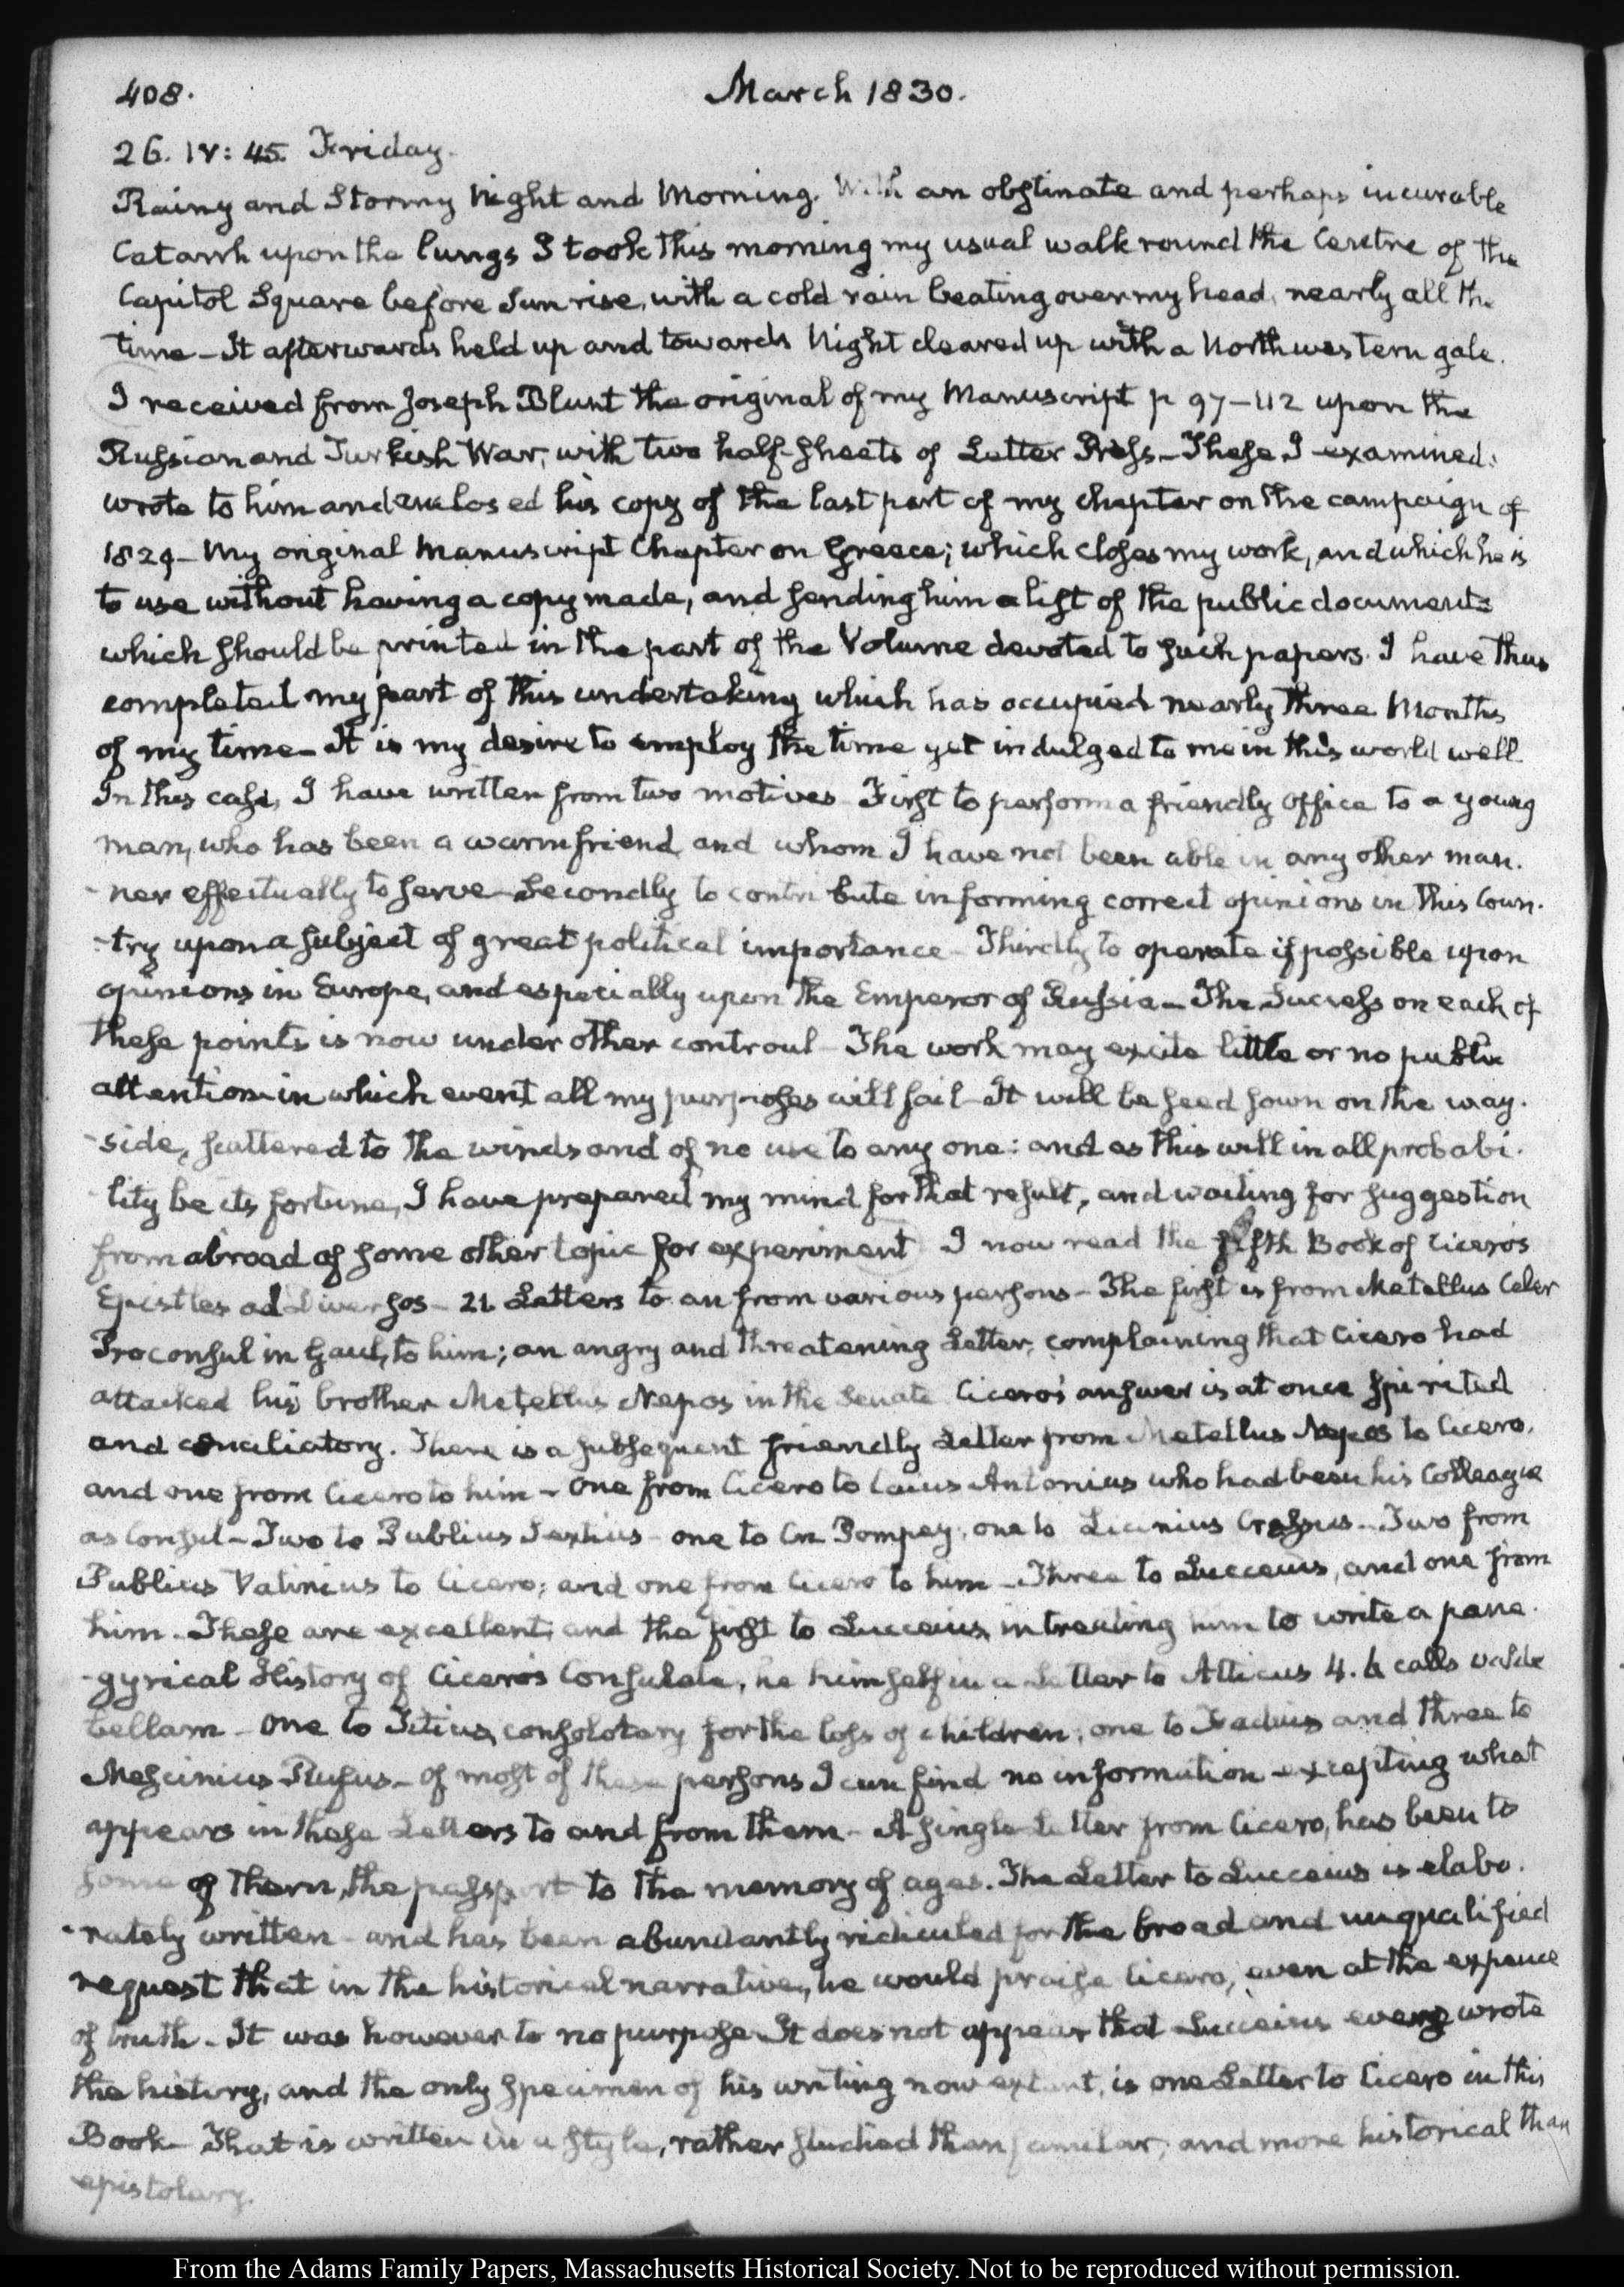 408.
March 1830.
26. IV: 45. Friday.
Rainy and Stormy Night and Morning. With an obstinate and perhaps incurable
Catarrh upon the lungs I took this morning my usual walk round the Centre of the
Capitol Square before Sun rise, with a cold rain beating over my head, nearly all the
time – It afterwards held up and towards Night cleared up with a Northwestern gale.
I received from Joseph Blunt the original of my Manuscript p 97–112 upon the
Russian and Turkish War, with two half-sheets of Letter Press – These I examined:
wrote to him and enclosed his copy of the last part of my chapter on the campaign of
1829 – My original Manuscript Chapter on Greece; which closes my work, and which he is
to use without having a copy made, and sending him a list of the public documents
which should be printed in the part of the Volume devoted to such papers. I have thus
completed my part of this undertaking which has occupied nearly three Months
of my time – It is my desire to employ the time yet indulged to me in this world well
In this case, I have written from two motives First to perform a friendly office to a young
man, who has been a warm friend and whom I have not been able in any other man-
-ner effectually to serve – Secondly to contribute in forming correct opinions in this Coun-
-try upon a subject of great political importance – Thirdly to operate if possible upon
opinions in Europe, and especially upon the Emperor of Russia – The Success on each of
these points is now under other controul – The work may excite little or no public
attention in which event all my purposes will fail – It will be seed sown on the way-
-side, scattered to the winds and of no use to any one: and as this will in all probabi-
lity be its fortune, I have prepared my mind for that result, and waiting for suggestion
from abroad of some other topic for experiment I now read the fifth Book of Cicero's
Epistles ad Diversos – 21 Letters to an from various persons – The first is from Metellus Celer
Proconsul in Gaul, to him; an angry and threatening Letter, complaining that Cicero had
attacked his brother Metellus Nepos in the Senate Cicero's answer is at once spirited
and conciliatory. There is a subsequent friendly Letter from Metellus Nepos to Cicero,
and one from Cicero to him – One from Cicero to Caius Antonius who had been his Colleague
as Consul – Two to Publius Sextius – one to Cn Pompey, one to Licinius Crassus – Two from
Publius Vatinius to Cicero; and one from Cicero to him – Three to Lucceius, and one from
him – These are excellent, and the first to Lucceius, intreating him to write a pane-
-gyrical History of Cicero's Consulate, he himself in a Letter to Atticus 4.6 calls valde
bellam – One to Titius, consolotary for the loss of children; one to Fadius and three to
Mescinius Rufus – of most of these persons I can find no information excepting what
appears in these Letters to and from them – A single Letter from Cicero, has been to
some of them, the passport to the memory of ages. The Letter to Lucceius is elabo-
-rately written – and has been abundantly ridiculed for the broad and unqualified
request that in the historical narrative, he would praise Cicero, even at the expence
of truth – It was however to no purpose It does not appear that Lucceius ever wrote
the history, and the only specimen of his writing now extant, is one Letter to Cicero in this
Book – That is written in a style, rather studied than familiar, and more historical than
epistolary.
From the Adams Family Papers, Massachusetts Historical Society. Not to be reproduced without permission.